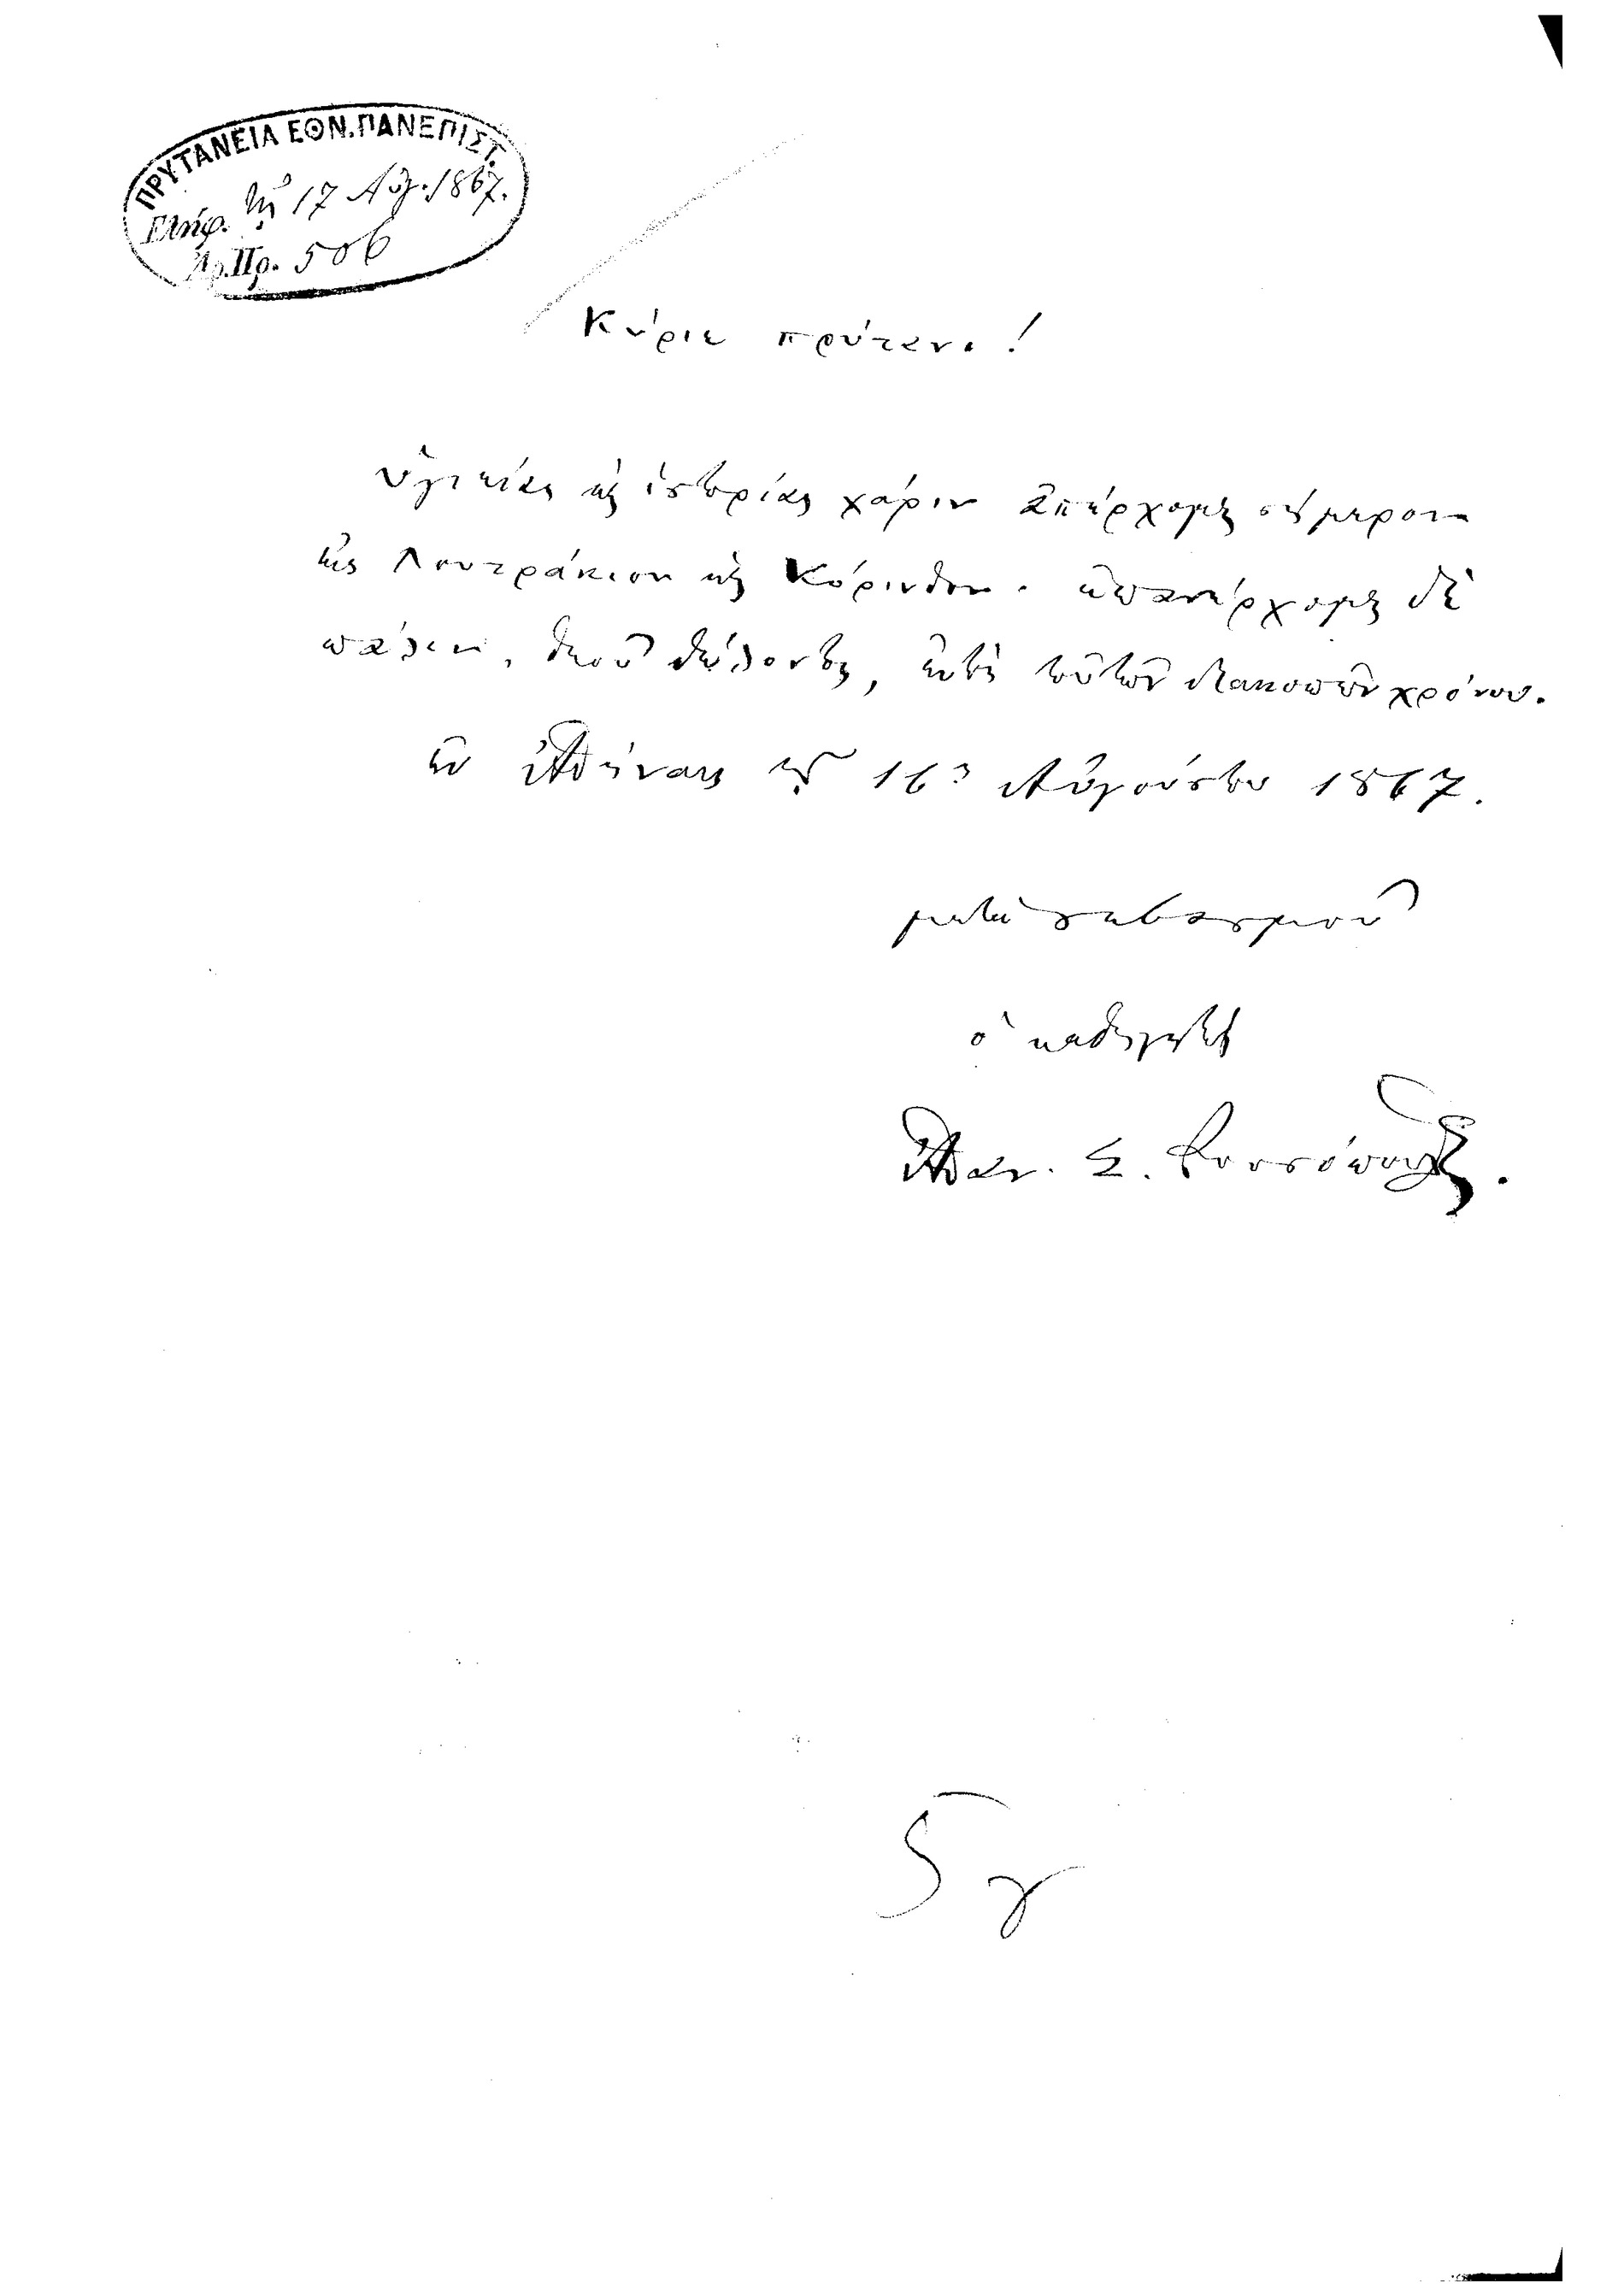 ΠΡΥΤΑΝΕΙΑ ΕΘΝ. ΠΑΝΕΠΙΣΤ.
Ἐλήφ. τῇ 17 Αὐγ. 1867.
Ἀρ. Πρ. 506
Κύριε πρύτανι!
ὑγιείας καὶ ἱστορίας χάριν ἀπέρχομαι σήμερον
εἰς Λουτράκιον καὶ Κόρινθον· ἐπανέρχομαι δὲ
πάλιν, θεοῦ θέλοντος, ἐντὸς τοῦ τῶν διακοπῶν χρόνου.
ἐν Ἀθήναις τῇ 16ῃ Αὐγούστου 1867.
μετὰ σεβασμοῦ
ὁ καθηγητὴς
Ἀθαν. Σ. Ῥουσόπουλος.
5 γ